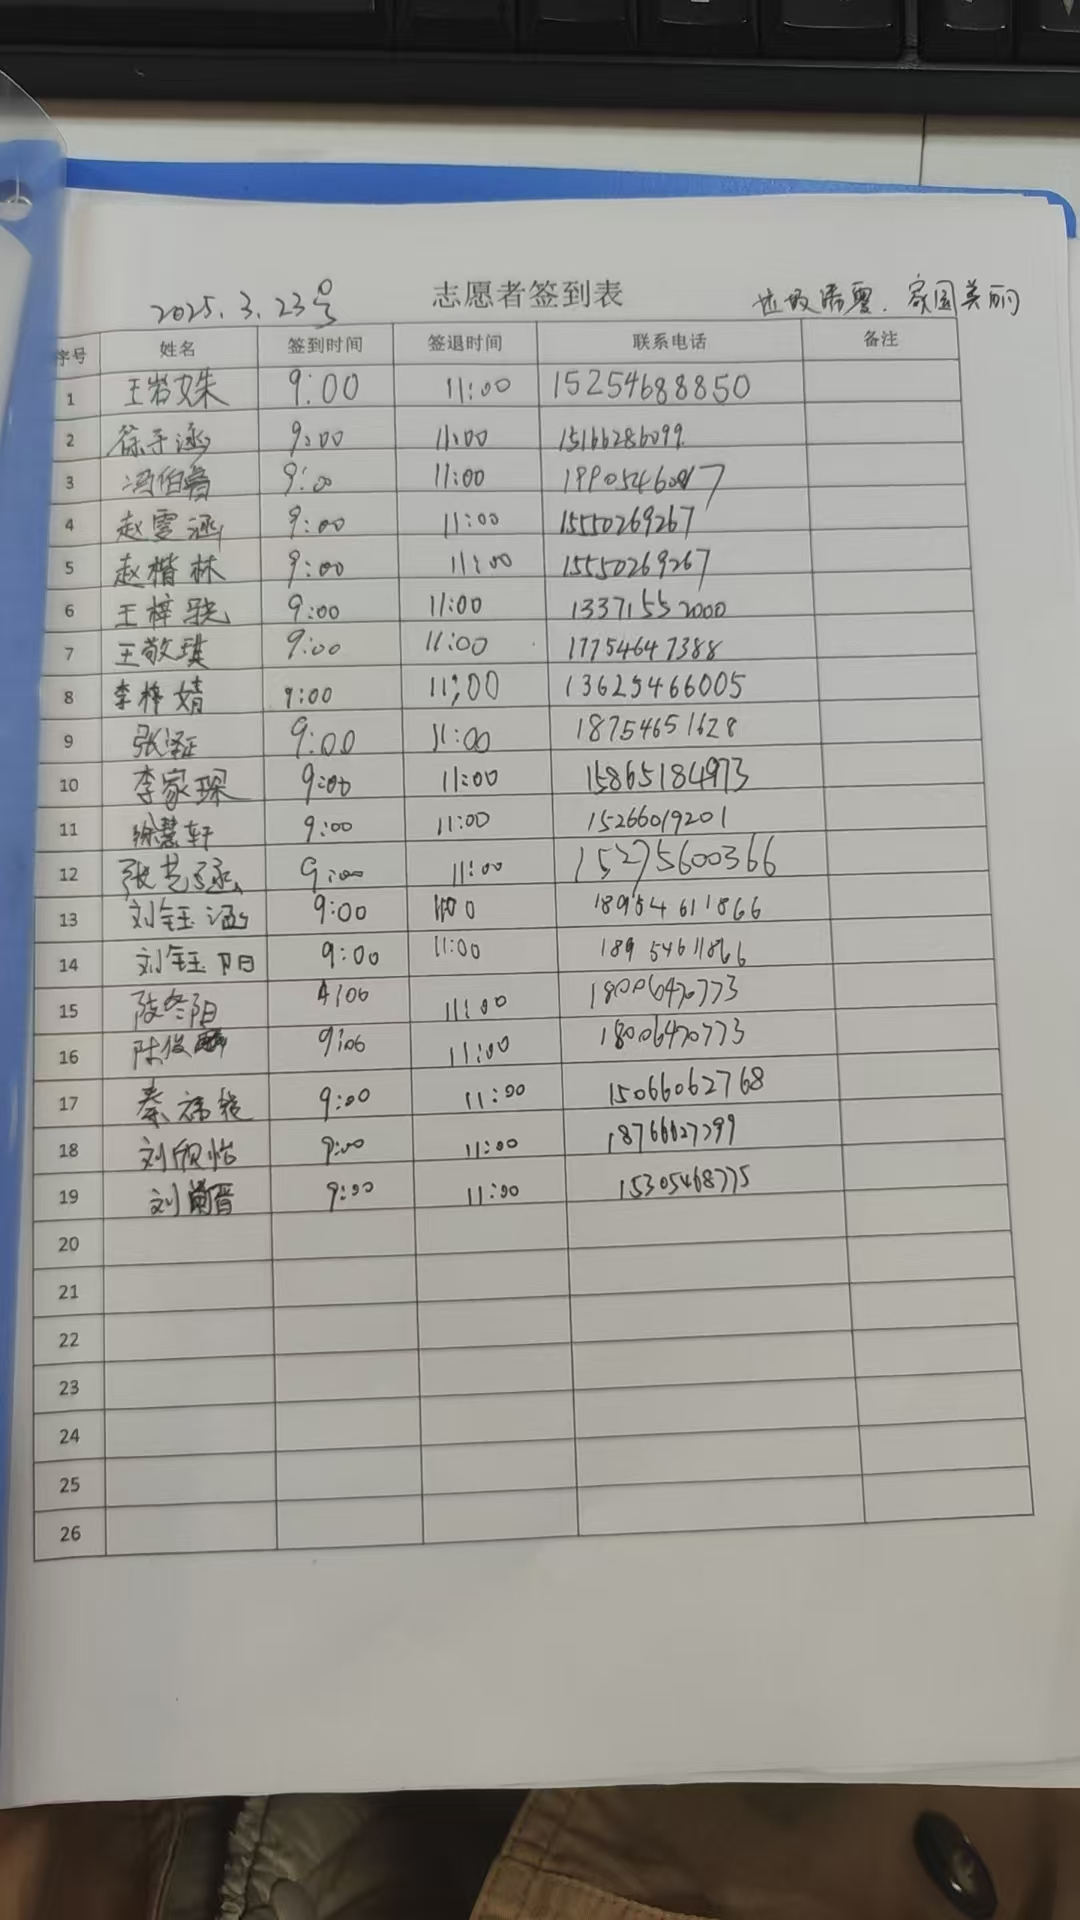 2025.3.23号 志愿者签到表 垃圾清零.家园美丽
序号 姓名 签到时间 签退时间 联系电话 备注
1 王岩姝 9:00 11:00 15254688850
2 徐子涵 9:00 11:00 15166286099
3 冯伯睿 9:00 11:00
4 赵雯涵 9:00 11:00 15550269267
5 赵楷林 9:00 11:00 15550269267
6 王梓骁 9:00 11:00 13371552000
7 王敬琪 9:00 11:00 17754647388
8 李梓婧 9:00 11:00 13625466005
9 张 9:00 11:00 18754651628
10 李家琛 9:00 11:00 15865184973
11 徐慧轩 9:00 11:00 15266019201
12 张艺涵 9:00 11:00 15275600366
13 刘钰涵 9:00 1100 18954611866
14 刘钰阳 9:00 11:00 18954611866
15 陵冬阳 11:00 18006470773
16 陈俊麟 9:06 11:00 18006470773
17 秦 9:00 11:00 15066062768
18 刘欣怡 9:00 11:00 18766627299
19 刘 9:00 11:00 15305468775
20
21
22
23
24
25
26